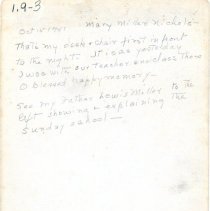 1.9-3
Oct 1st 1941 Mary Miller Nichols-
That's my desk & chair first in front
to the right. It is as yesterday
I was with our teacher and class there
O blessed happy memory -
See my father Lewis Miller to the
left showing & explaining the
Sunday school -